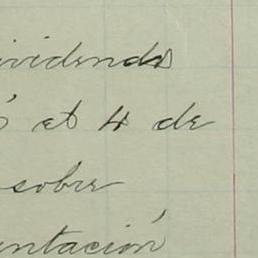 ividendo
et 4 de
sobre
ntación